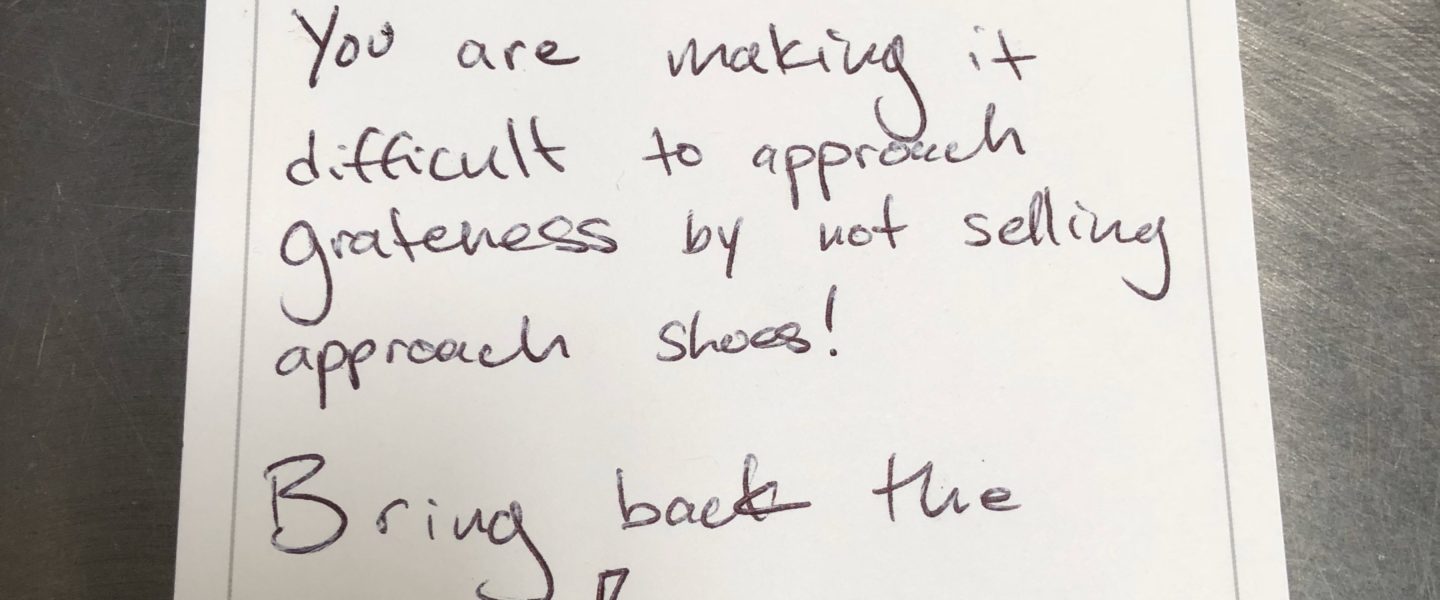 You are making it
difficult to approach
grateness by not selling
approach shoes!
Bring back the